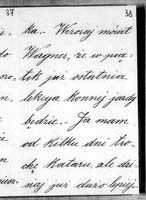 37 38
ka. Wczoraj mówił
Wagner, że w pią-
tek już ostatnia
lekcya konnej jazdy
będzie. Ja mam
od kilku dni tro-
chę kataru, ale dzi-
siaj już dużo lepiej.